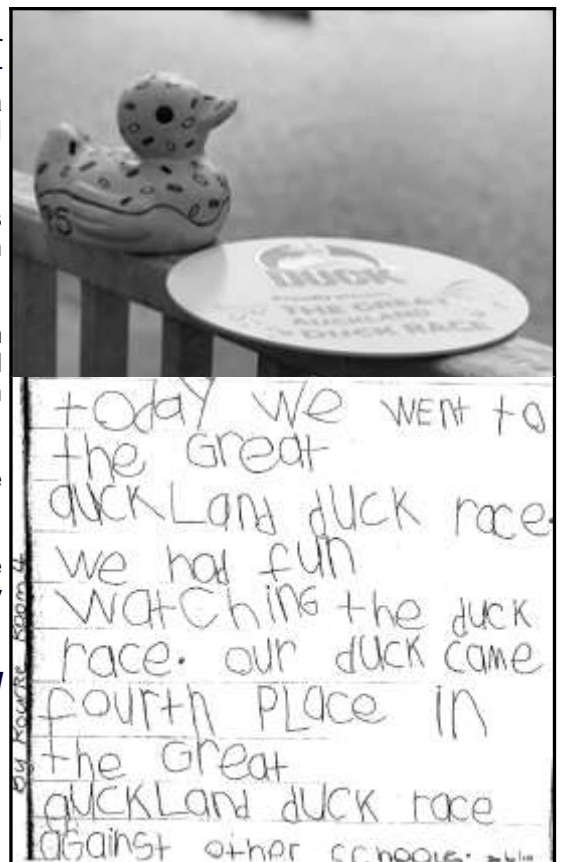 DUCK
THE GREAT
AUCKLAND
DUCK RACE
today we went to
the Great
auckland duck race.
we had fun
watching the duck
race. our duck came
fourth place in
the Great
auckland duck race
against other schools.
By Rourke Room 4